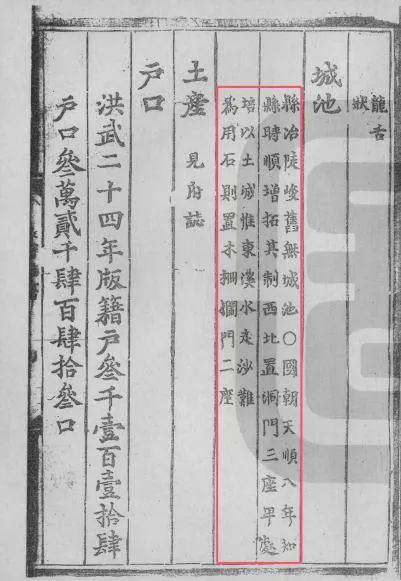 龍舌
狀
城池
縣治陡峻舊無城池○國朝天順八年知
縣時順增拓其制西北置洞門三座卑處
培以土城惟東溪水走沙難
爲用石則置木柵攔門二座
土產 見府誌
戶口
洪武二十四年版籍戶叄千壹百壹拾肆
戶口叄萬貳千肆百肆拾叄口